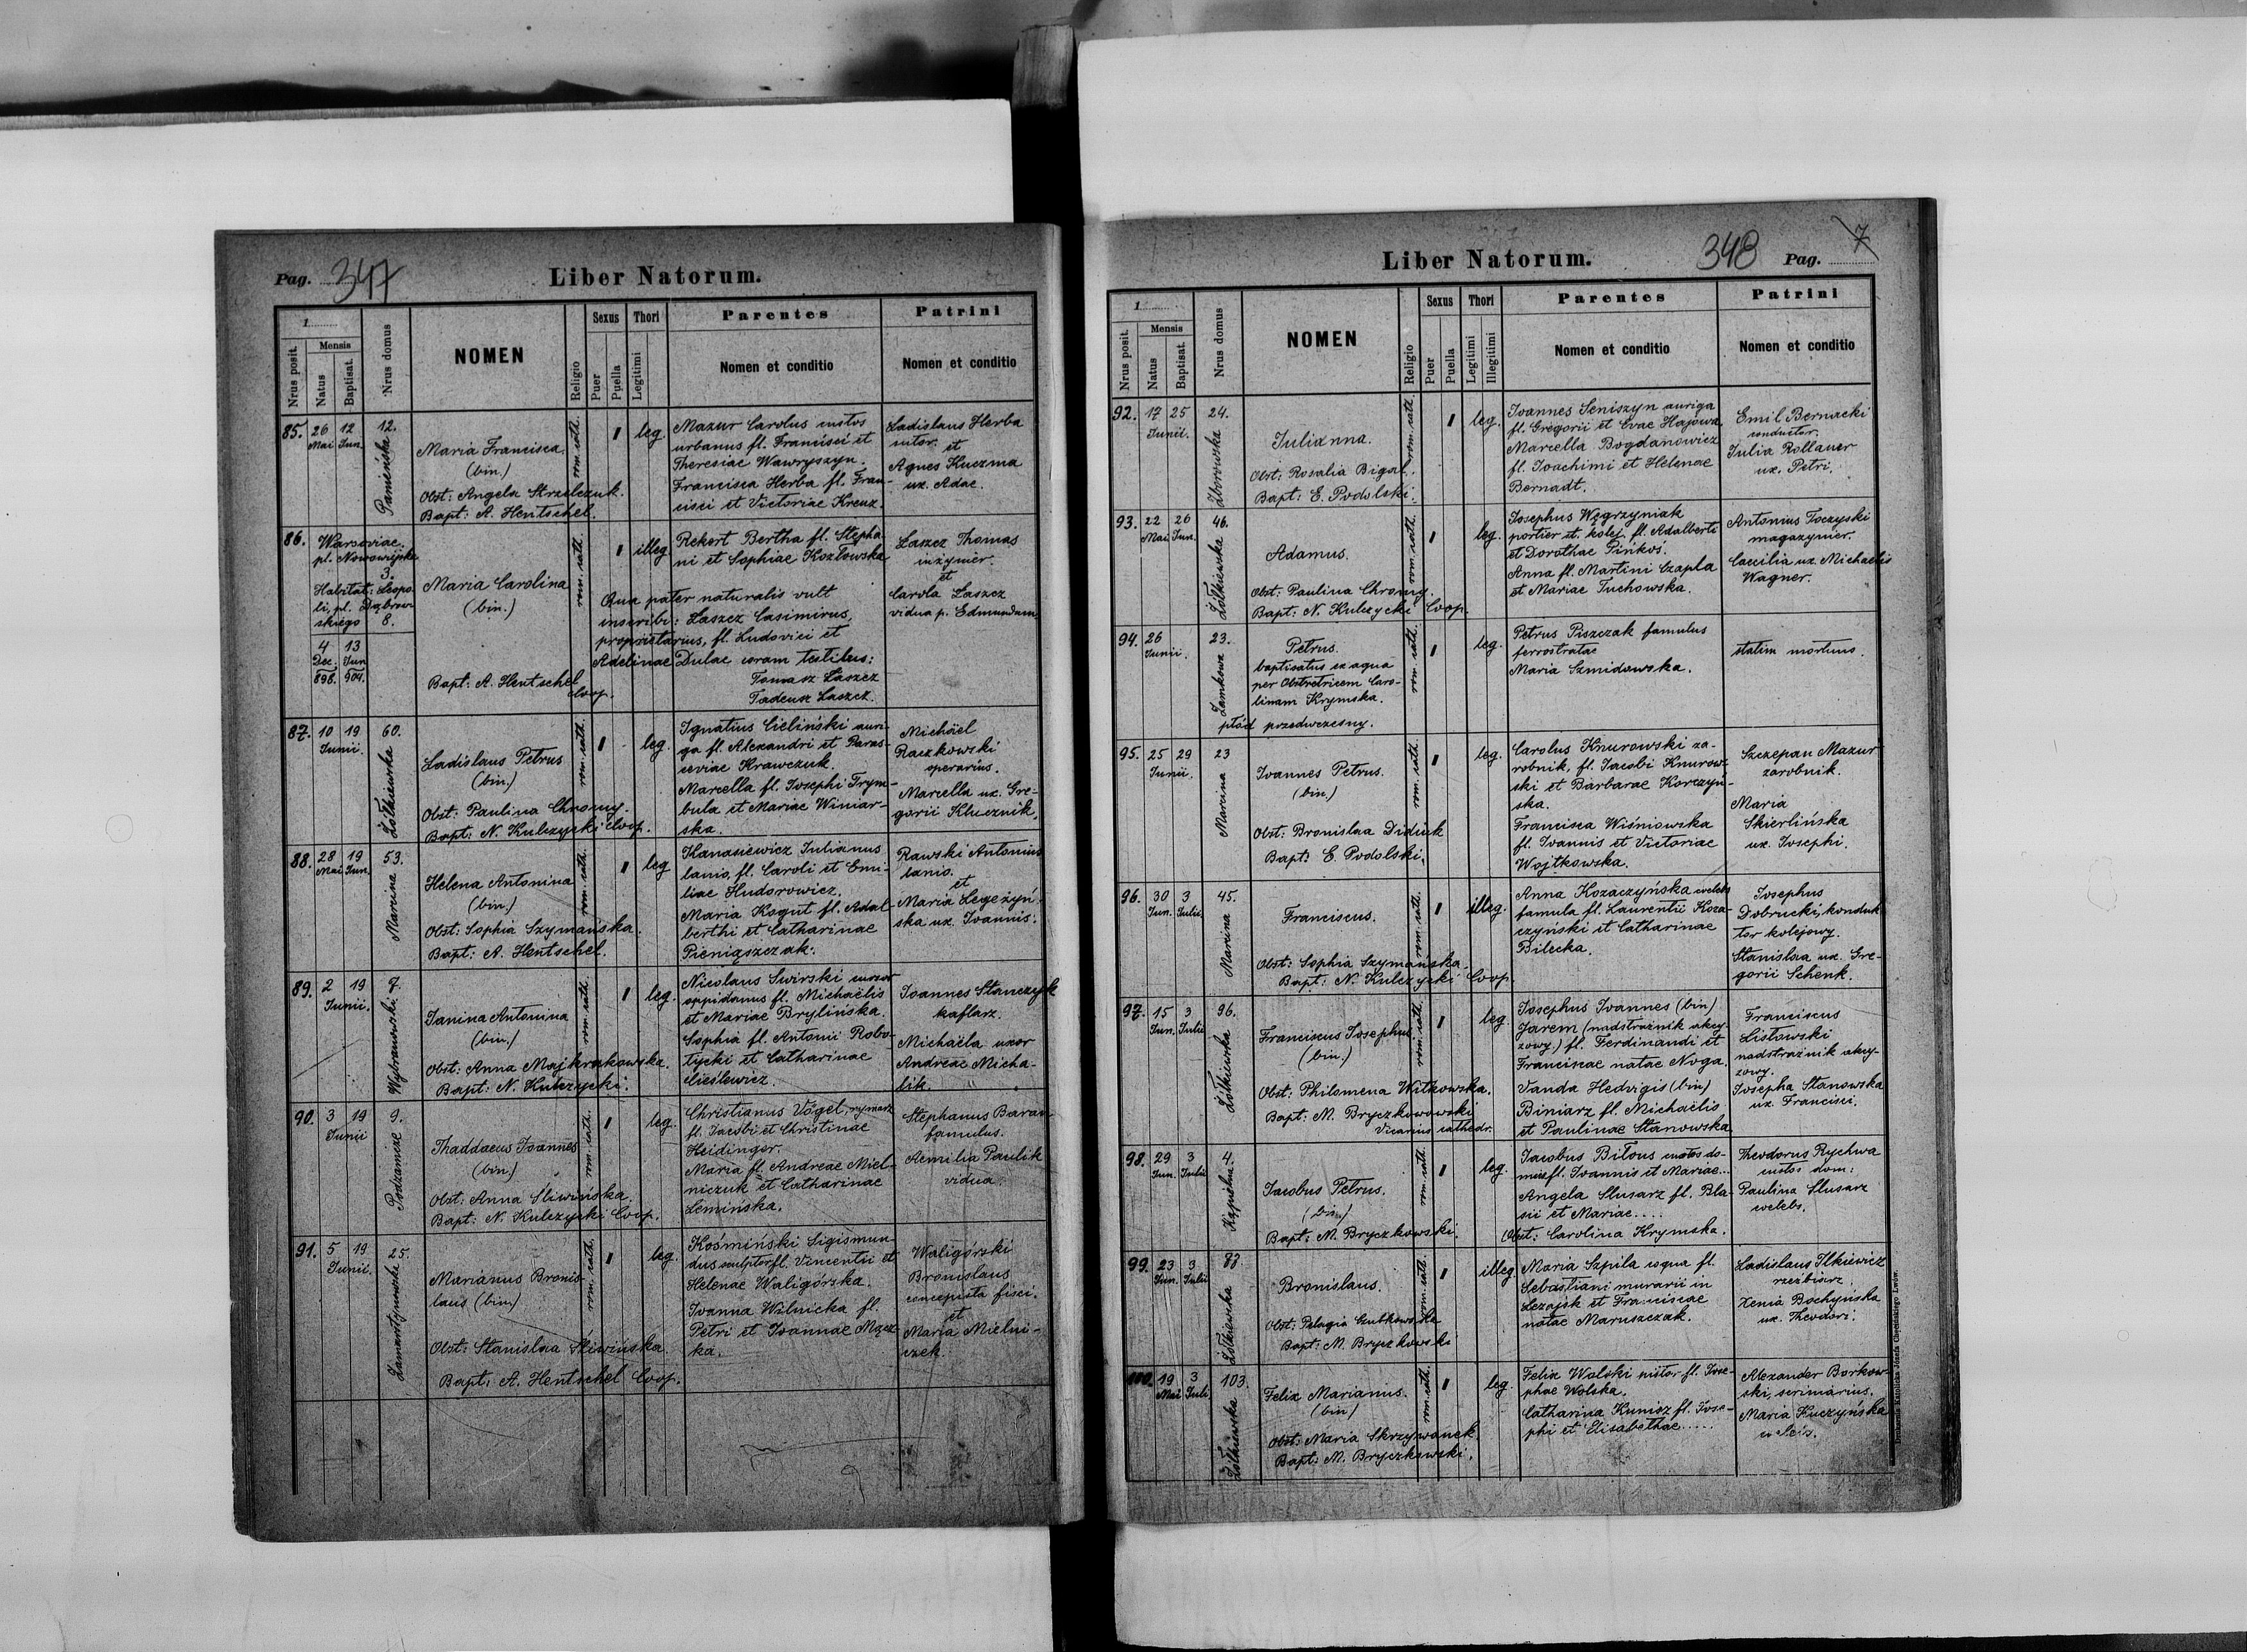 Pag. 347
Liber Natorum.
1
Nrus posit.
Mensis
Natus
Baptisat.
Nrus domus
NOMEN
Religio
Sexus
Puer
Puella
Thori
Legitimi
Parentes
Nomen et conditio
Patrini
Nomen et conditio
85. 26 Mai 12 Jun.
12.
Maria Francisca
(bin.)
Obst: Angela Strzelczuk.
Bapt: A. Hentschel.
rom. cath.
1 leg.
Mazur Carolus custos
urbanus fl. Francisci et
Theresiae Wawryszyn.
Francisca Herba fl. Fran-
cisci et Victoriae Kreuz.
Ladislaus Herba
et
Agnes Kuczma
ux. Adae.
86. Warsoviae.
3.
Habitat: Leopo-
li, pl. Dąbrow-
skiego 8.
4 Dec. 898. 13 Jun 904.
Maria Carolina
(bin.)
Bapt: A. Hentschel
Coop.
rom. cath.
1 illeg.
Rekert Bertha fl. Stepha
ni et Sophiae Kozłowska
Qua pater naturalis vult
inscribi: Łaszcz Casimirus,
proprietarius, fl. Ludovici et
Adelinae Dulac coram testibus:
Tomasz Łaszcz
Tadeusz Łaszcz.
Łaszcz Thomas
inżynier.
et
Carola Łaszcz
vidua p. Edmundum
87. 10 19
Junii.
60.
Żółkiewska
Ladislaus Petrus
(bin.)
Obst: Paulina Chromy.
Bapt: N. Kulczycki Coop.
rom. cath.
1 leg.
Ignatius Cieliński auri-
ga fl. Alexandri et Paras-
ceviae Krawczuk.
Marcella fl. Josephi Trym-
bula et Mariae Winiar-
ska.
Michäel
Raczkowski
operarius.
Marcella ux. Gre-
gorii Klucznik.
88. 28 Mai 19 Jun.
53.
Marcina
Helena Antonina
(bin.)
Obst: Sophia Szymańska.
Bapt: A. Hentschel.
rom. cath.
1 leg
Kanasiewicz Julianus
lanio, fl. Caroli et Emi-
liae Hudorowicz.
Maria Kogut fl. Adal-
berthi et Catharinae
Pieniąszczak.
Rawski Antonius
lanio.
et
Maria Legeżyń-
ska ux. Joannis.
89. 2 19
Junii.
Wybranowski
Janina Antonina
(bin.)
Obst: Anna Majkrakowska.
Bapt: N. Kulczycki.
rom. cath.
1 leg.
Nicolaus Swirski
oppidanus fl. Michaëlis
et Mariae Brylińska.
Sophia fl. Antonii Robo-
tycki et Catharinae
Cieślewicz.
Joannes Stanczyk
kaflarz.
Michaëla uxor
Andreae Micha-
lik.
90. 3 19
Junii
9.
Podzamcze
Thaddaeus Joannes
(bin)
Obst: Anna Śliwińska.
Bapt: N. Kulczycki Coop.
rom. cath.
1 leg.
Christianus Vögel, rymarz
fl. Jacobi et Christinae
Heidinger.
Maria fl. Andreae Miel-
niczuk et Catharinae
Lemińska.
Stephanus Baran
famulus.
Aemilia Paulik
vidua
91. 5 19
Junii.
25.
Zamarstynowski
Marianus Bronis-
laus (bin.)
Obst: Stanislaa Śliwińska
Bapt: A. Hentschel Coop.
rom. cath.
1 leg.
Kośmiński Sigismun-
dus sculptor fl. Vincentii et
Helenae Waligórska.
Joanna Wilnicka fl.
Petri et Joannae Mącz-
ka.
Waligórski
Bronislaus
concepista fisci.
et
Maria Mielni-
czek.
Liber Natorum.
348 Pag. 7
1
Nrus posit.
Mensis
Natus
Baptisat.
Nrus domus
NOMEN
Religio
Sexus
Puer
Puella
Thori
Legitimi
Illegitimi
Parentes
Nomen et conditio
Patrini
Nomen et conditio
92. 17 25
Junii.
24.
Zborowska
Julianna.
Obst: Rosalia Bigal.
Bapt: E. Podolski.
rom. cath.
1 leg.
Joannes Seniszyn auriga
fl. Gregorii et Evae Hajowa
Marcella Bogdanowicz
fl. Joachimi et Helenae
Bernadt.
Emil Bernacki
conductor.
Julia Rollauer
ux. Petri.
93. 22 Mai 26 Jun.
46.
Żółkiewska
Adamus.
Obst: Paulina Chromy.
Bapt: N. Kulczycki Coop.
rom. cath.
1 leg.
Josephus Węgrzyniak
portier st. kolej. fl. Adalberti
et Dorothae Pińkoś.
Anna fl. Martini Czapla
et Mariae Tuchowska.
Antonius Toczyski
magazynier.
Caecilia ux. Michaelis
Wagner.
94. 26
Junii.
23.
Zamkowa
Petrus.
baptisatus ex aqua
per Obstetricem Caro-
linam Krymska.
płód przedwczesny.
rom. cath.
1 leg.
Petrus Piszczak famulus
ferrostratae
Maria Szmidowska.
statim mortuus.
95. 25 29
Junii.
23
Marcina
Joannes Petrus.
(bin.)
Obst: Bronislaa Didiuk
Bapt: E. Podolski.
rom. cath.
1 leg.
Carolus Knurowski za-
robnik, fl. Jacobi Knurow-
ski et Barbarae Korczyń-
ska.
Francisca Wiśniowska
fl. Joannis et Victoriae
Wojtkowska.
Szczepan Mazur
zarobnik.
Maria
Skierlińska
ux. Josephi.
96. 30 Jun. 3 Julii
45.
Marcina
Franciscus.
Obst: Sophia Szymańska
Bapt: N. Kulczycki Coop.
rom. cath.
1 illeg.
Anna Kozaczyńska coelebs
famula fl. Laurentii Koza-
czyński et Catharinae
Bilecka.
Josephus
Dobrucki, konduk
tor kolejowy.
Stanislaa ux. Gre-
gorii Schenk.
97. 15 Jun. 3 Julii
96.
Żółkiewska
Franciscus Josephus
(bin.)
Obst: Philomena Witkowska.
Bapt: M. Bryczkowowski
Vicarius cathedr.
rom. cath.
1 leg.
Josephus Joannes (bin)
Jarem (nadstrażnik akcy-
zowy.) fl. Ferdinandi et
Franciscae natae Noga.
Vanda Hedvigis (bin)
Biniarz fl. Michaëlis
et Paulinae Stanowska
Franciscus
Listowski
nadstrażnik akcy-
zowy.
Josepha Stanowska
ux. Francisci.
98. 29 Jun. 3 Julii
4.
Kąpielna
Jacobus Petrus.
(bin)
Bapt: M. Bryczkowski.
rom. cath.
1 leg.
Jacobus Biłous custos do-
mus fl. Joannis et Mariae...
Angela Slusarz fl. Bla-
sii et Mariae....
Obst: Carolina Krymska.
Theodorus Rychwa
custos dom:
Paulina Slusarz
coelebs.
99. 23 Jun. 3 Julii
Żółkiewska
Bronislaus.
Obst: Pelagia Gubkowska
Bapt: M. Bryczkowski
rom. cath.
1 illeg.
Maria Szpila coqua fl.
Sebastiani murarii in
Leżajsk et Franciscae
natae Marusaczak.
Ladislaus Ilkiewicz
rzeźbiarz.
Xenia Bochyńska
ux. Theodori.
100. 19 Mai 3 Juli
103.
Żółkiewska
Felix Marianus.
(bin)
Obst: Maria Skrzywanek.
Bapt: M. Bryczkowski.
rom. cath.
1 leg.
Felix Walski pistor fl. Jose-
phae Wolska.
Catharina Kunisz fl. Jose-
phi et Elisabethae....
Alexander Borkow-
ski, scrinarius.
Maria Kuczyńska
Drukarnia Katolicka Józefa Chęcińskiego Lwów.